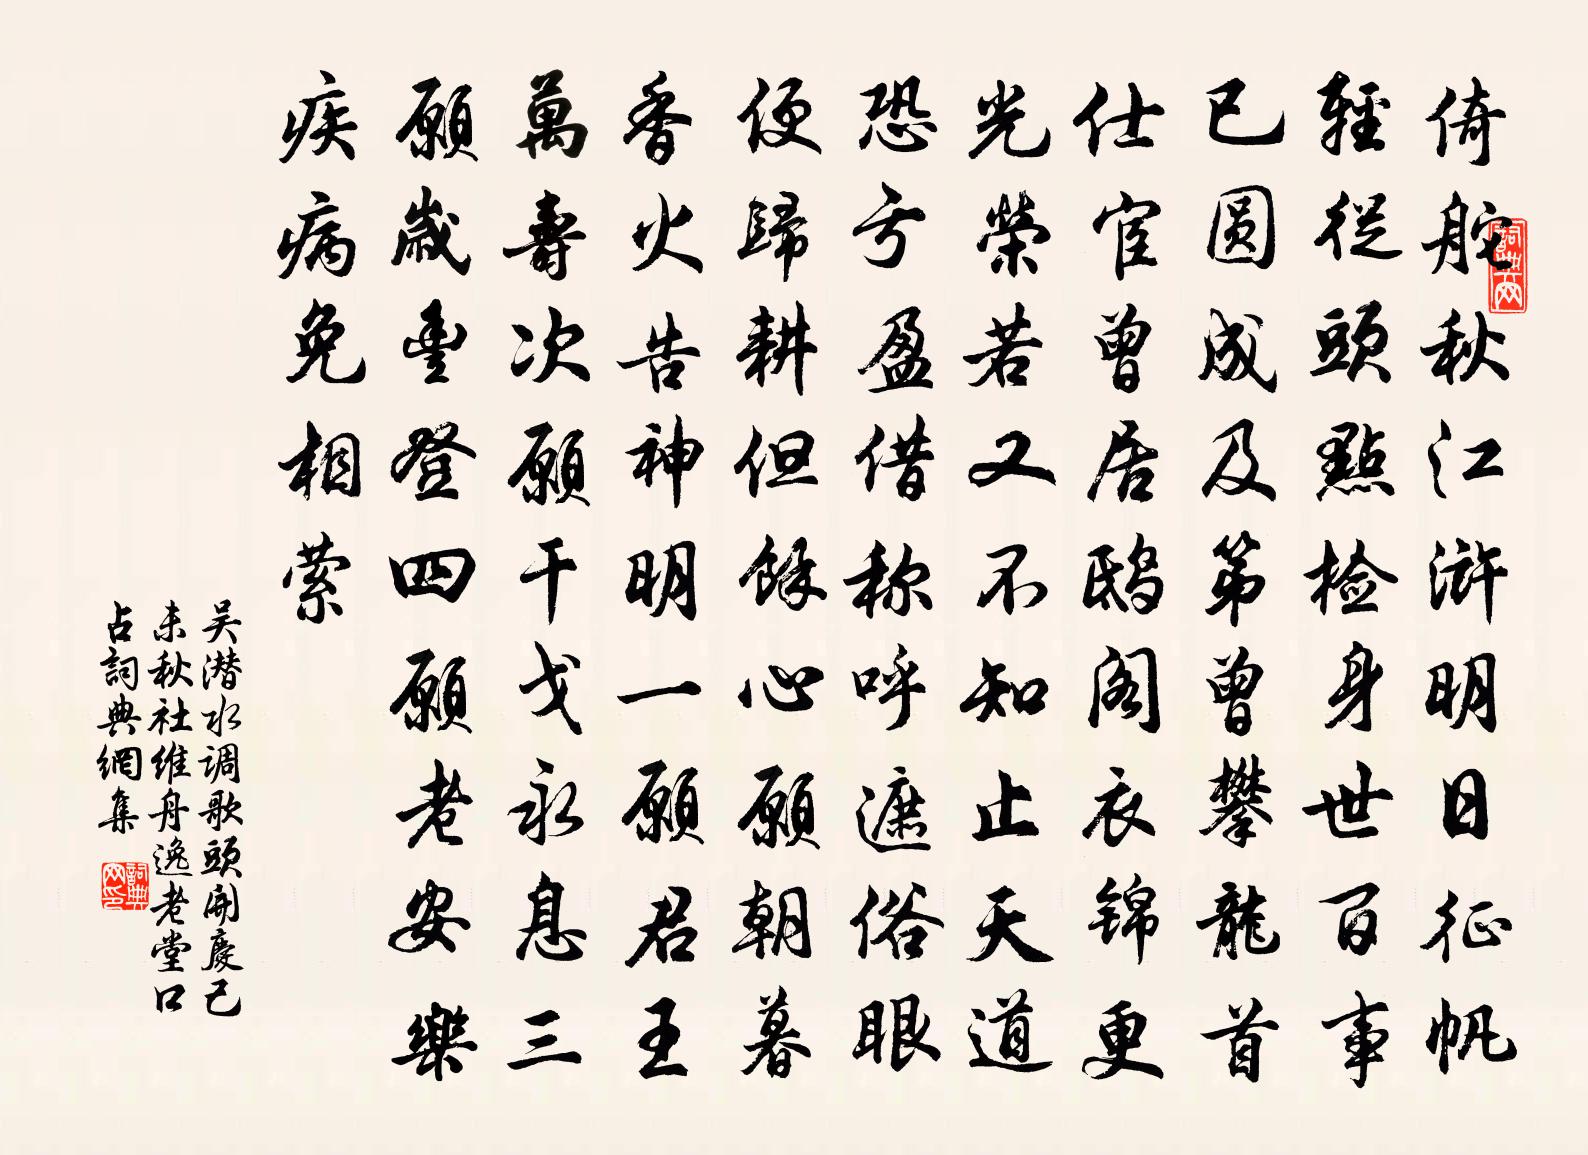 倚舵秋江滸明日征帆
輕從頭點檢身世百事
已圓成及第曾攀龍首
仕宦曾居鴟閣衣錦更
光榮若又不知止天道
恐亏盈借称呼遮俗眼
便歸耕但餘心願朝暮
香火告神明一願君王
萬壽次願干戈永息三
願歲豐登四願老安樂
疾病免相縈
吴潜水调歌頭開慶己
未秋社維舟逸老堂口
占詞典網集
詞典网
詞典网印